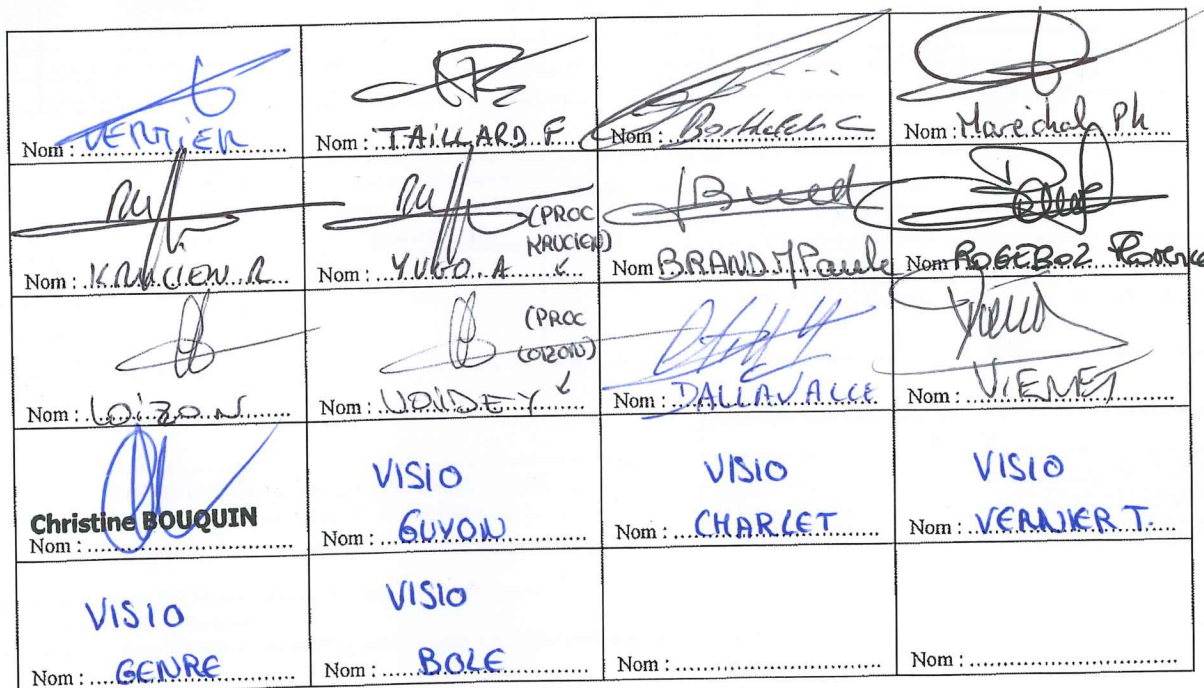 Nom : VERTIER
Nom : TAILLARD F
Nom : Barthelet C
Nom : Maréchal Ph
Nom : KRUCIEN R
(PROC KRUCIEN)
Nom : YUGO A
Nom BRAND M Paule
Nom ROGEBOZ Florence
Nom : LOIZON
(PROC LOIZON)
Nom : VOIDEY
Nom : DALLAVALLE
Nom : VIENET
Christine BOUQUIN
Nom :
VISIO
Nom : GUYON
VISIO
Nom : CHARLET
VISIO
Nom : VERNIER T.
VISIO
Nom : GENRE
VISIO
Nom : BOLE
Nom :
Nom :